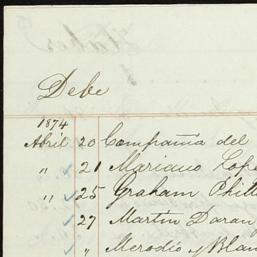 Debe
1874
Abril 20 Compañia del
" 21 Mariano Lope
" 25 Graham Phill
27 Martin Daran
" Merodio y Blan